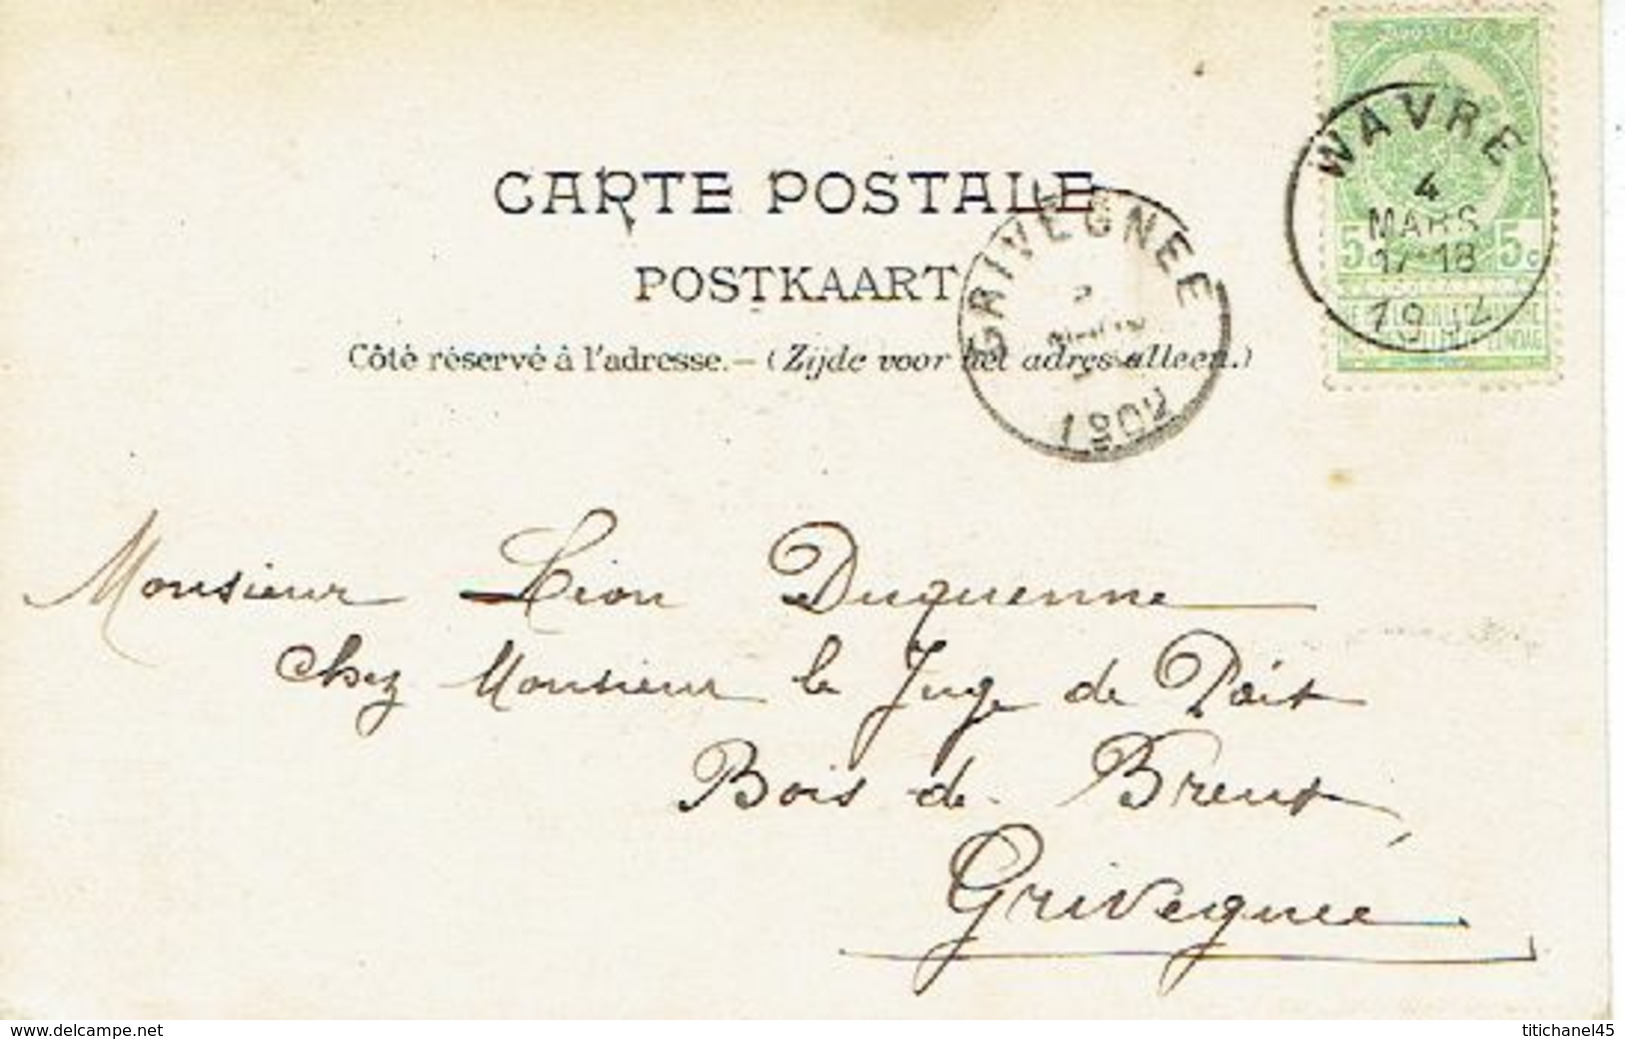 CARTE POSTALE
POSTKAART
Côté réservé à l'adresse. – (Zijde voor het adres alleen.)
WAVRE
4
MARS
17-18
5c 5c
GRIVEGNEE
1902
Monsieur Léon Duquenne
chez Monsieur le Juge de Paix
Bois de Breux,
Grivegnée
www.delcampe.net
titichanel45